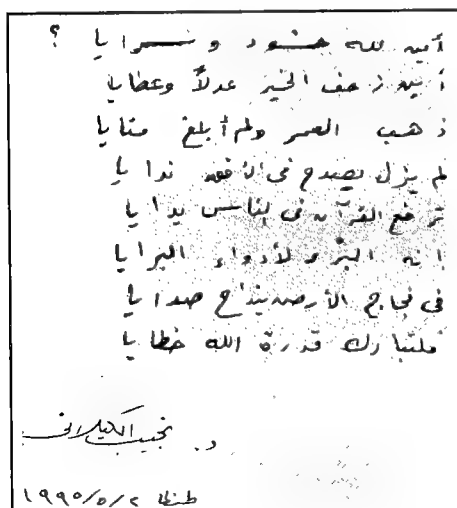 أين لله حشود وسرايا ؟
أين زحف الخير عدلاً وعطايا
ذهب العمر ولم أبلغ منايا
لم يزل يصدح في الأفق ندايا
ترفع القرآن في الناس يدايا
إنه البرء لأدواء البرايا
في فجاج الأرض ينداح صدايا
فلتبارك قدرة الله خطايا
د. نجيب الكيلاني
طنطا ١٩٩٥/٥/٢